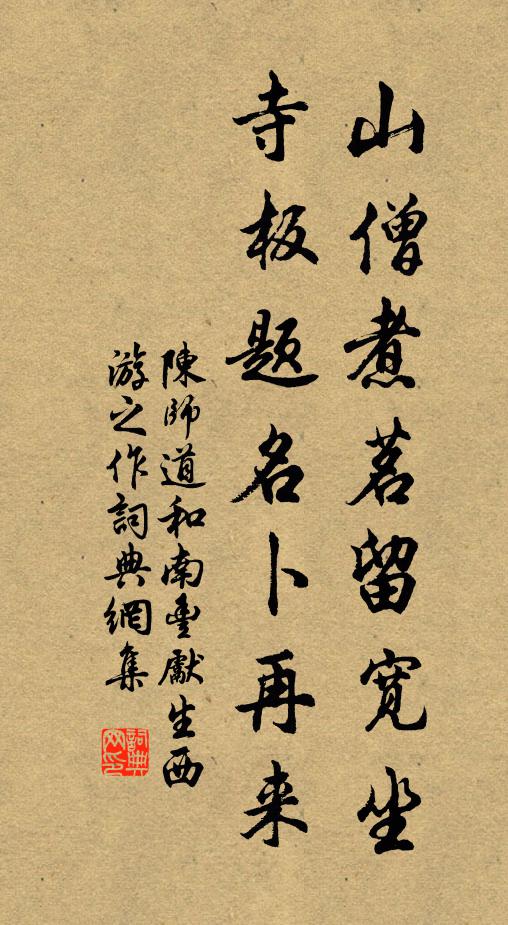 山僧煮茗留寬坐
寺板題名卜再来
陳師道和南豐獻生西
游之作詞典網集
詞典
网印